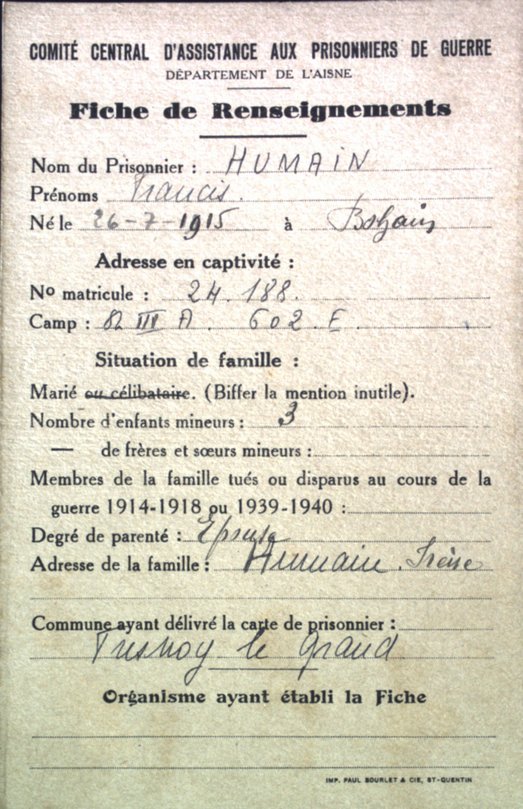 COMITÉ CENTRAL D'ASSISTANCE AUX PRISONNIERS DE GUERRE
DÉPARTEMENT DE L'AISNE
Fiche de Renseignements
Nom du Prisonnier : HUMAIN
Prénoms Francis.
Né le 26-7-1915 à Bohain
Adresse en captivité :
No matricule : 24.188.
Camp : III A. 602. E.
Situation de famille :
Marié ou célibataire. (Biffer la mention inutile).
Nombre d'enfants mineurs : 3
— de frères et sœurs mineurs :
Membres de la famille tués ou disparus au cours de la
guerre 1914-1918 ou 1939-1940 :
Degré de parenté : Epouse
Adresse de la famille : Humain
Commune ayant délivré la carte de prisonnier :
Fresnoy le Grand
Organisme ayant établi la Fiche
IMP. PAUL BOURLET & CIE, ST-QUENTIN